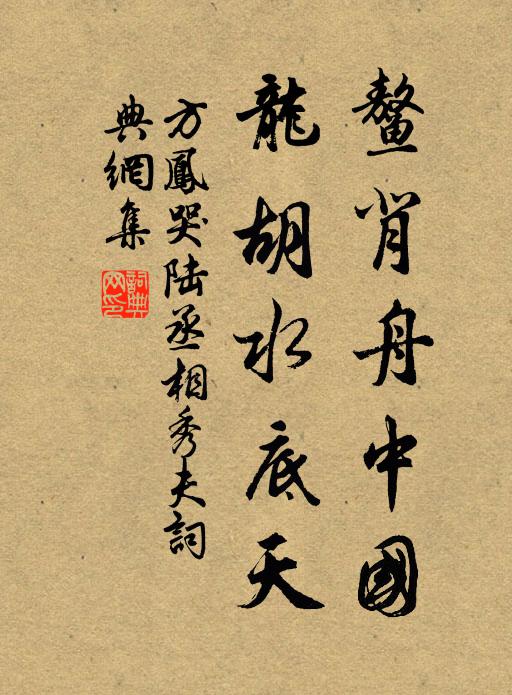 鰲背舟中國
龍胡水底天
方鳳哭陆丞相秀夫詞
典網集
詞典
网印